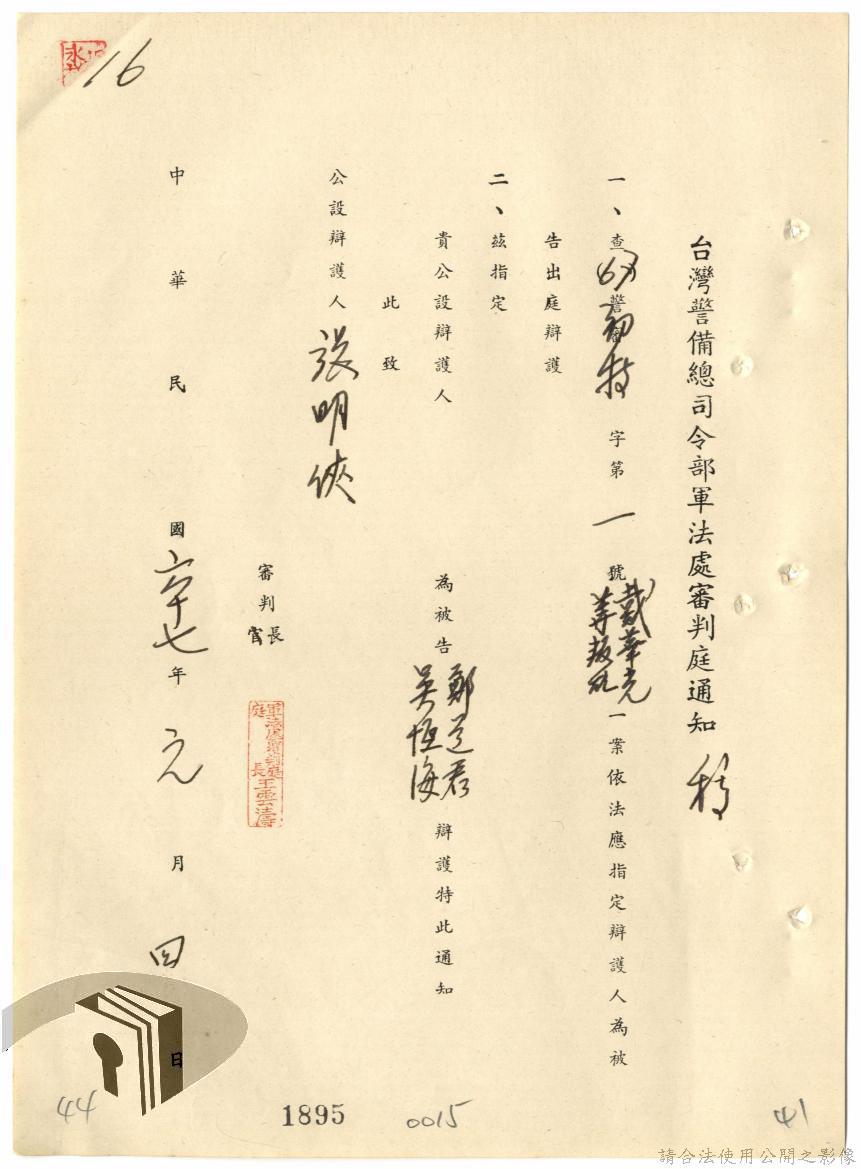 16
台灣警備總司令部軍法處審判庭通知 稿
一、查67初特字第一號戴華光等叛亂一案依法應指定辯護人為被
告出庭辯護
二、茲指定
貴公設辯護人為被告鄭道君吳恆海辯護特此通知
此致
公設辯護人 張明俠
審判長
官
軍法處審判庭
庭長王雲濤
中華民國六十七年元月四日
44
1895
0015
41
請合法使用公開之影像